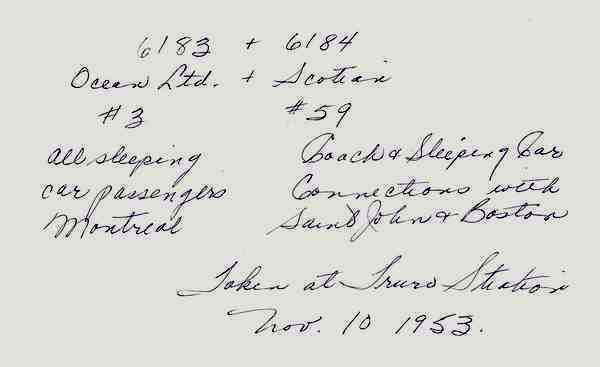 6183 + 6184
Ocean Ltd. + Scotian
#3 #59
All sleeping Coach & Sleeping Car
car passengers Connections with
Montreal Saint John & Boston
Taken at Truro Station
Nov. 10 1953.